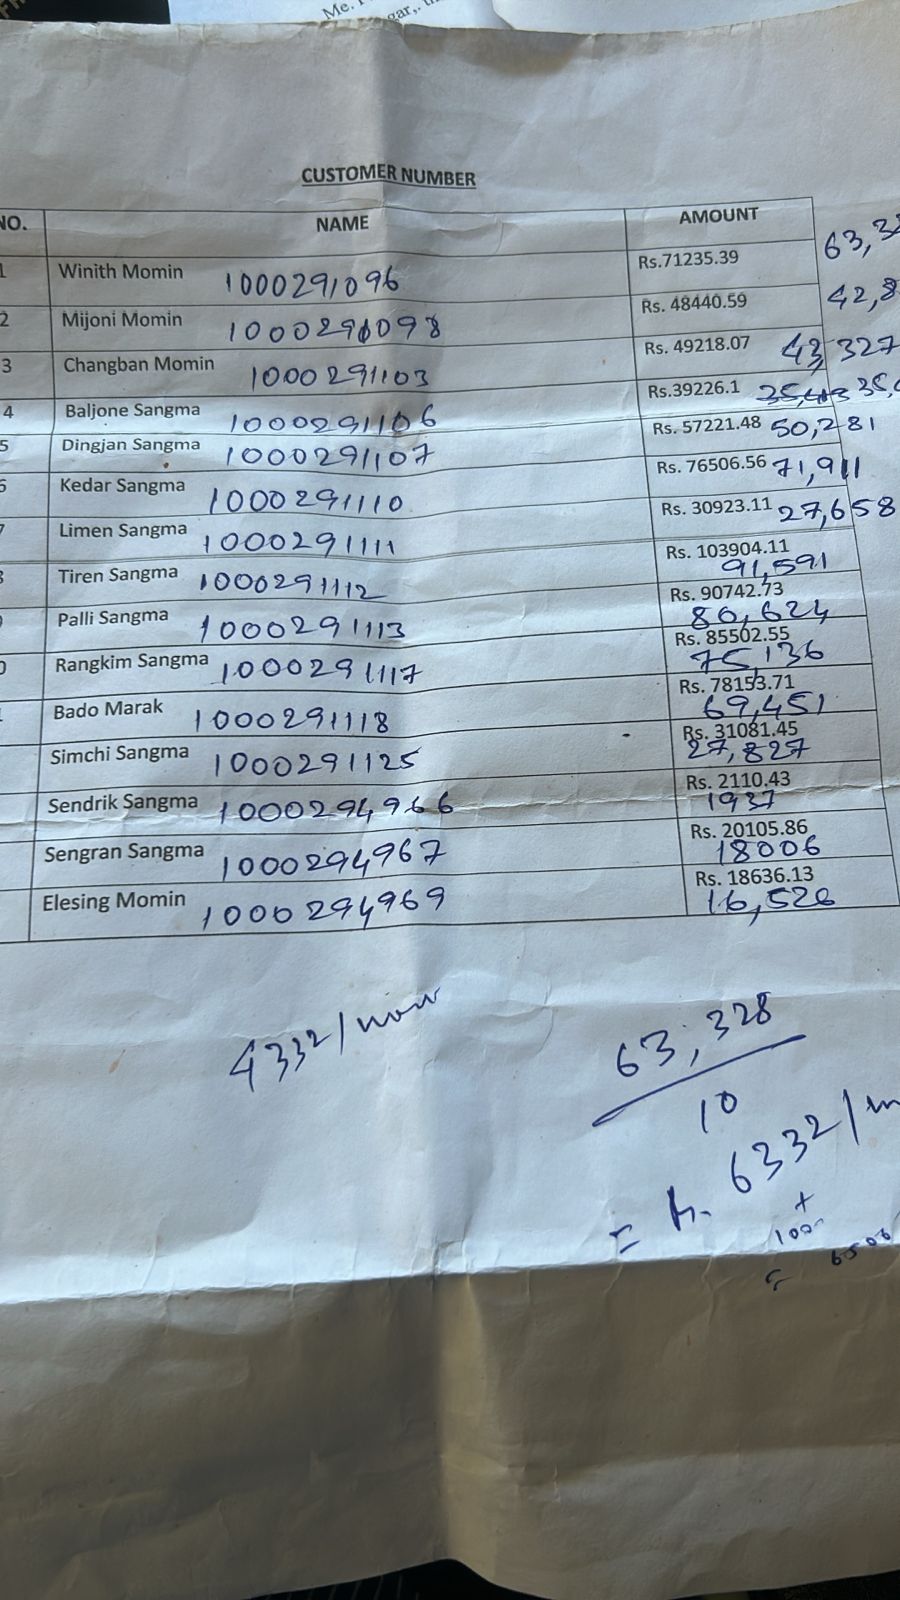 Me.
gar,.
CUSTOMER NUMBER
NO. NAME AMOUNT
1 Winith Momin 1000291096 Rs.71235.39 63,32
2 Mijoni Momin 1000291098 Rs. 48440.59 42,8
3 Changban Momin 1000291103 Rs. 49218.07 43,327
4 Baljone Sangma 1000291106 Rs.39226.1 35,
5 Dingjan Sangma 1000291107 Rs. 57221.48 50,281
6 Kedar Sangma 1000291110 Rs. 76506.56 71,911
7 Limen Sangma 1000291111 Rs. 30923.11 27,658
8 Tiren Sangma 1000291112 Rs. 103904.11 91,591
Palli Sangma 1000291113 Rs. 90742.73 80,624
0 Rangkim Sangma 1000291117 Rs. 85502.55 75,136
Bado Marak 1000291118 Rs. 78153.71 69,451
Simchi Sangma 1000291125 Rs. 31081.45 27,827
Sendrik Sangma 1000294966 Rs. 2110.43 1937
Sengran Sangma 1000294967 Rs. 20105.86 18006
Elesing Momin 1000294969 Rs. 18636.13 16,526
4332/
63,328
10
= Rs. 6332/m
+
100
= 6500